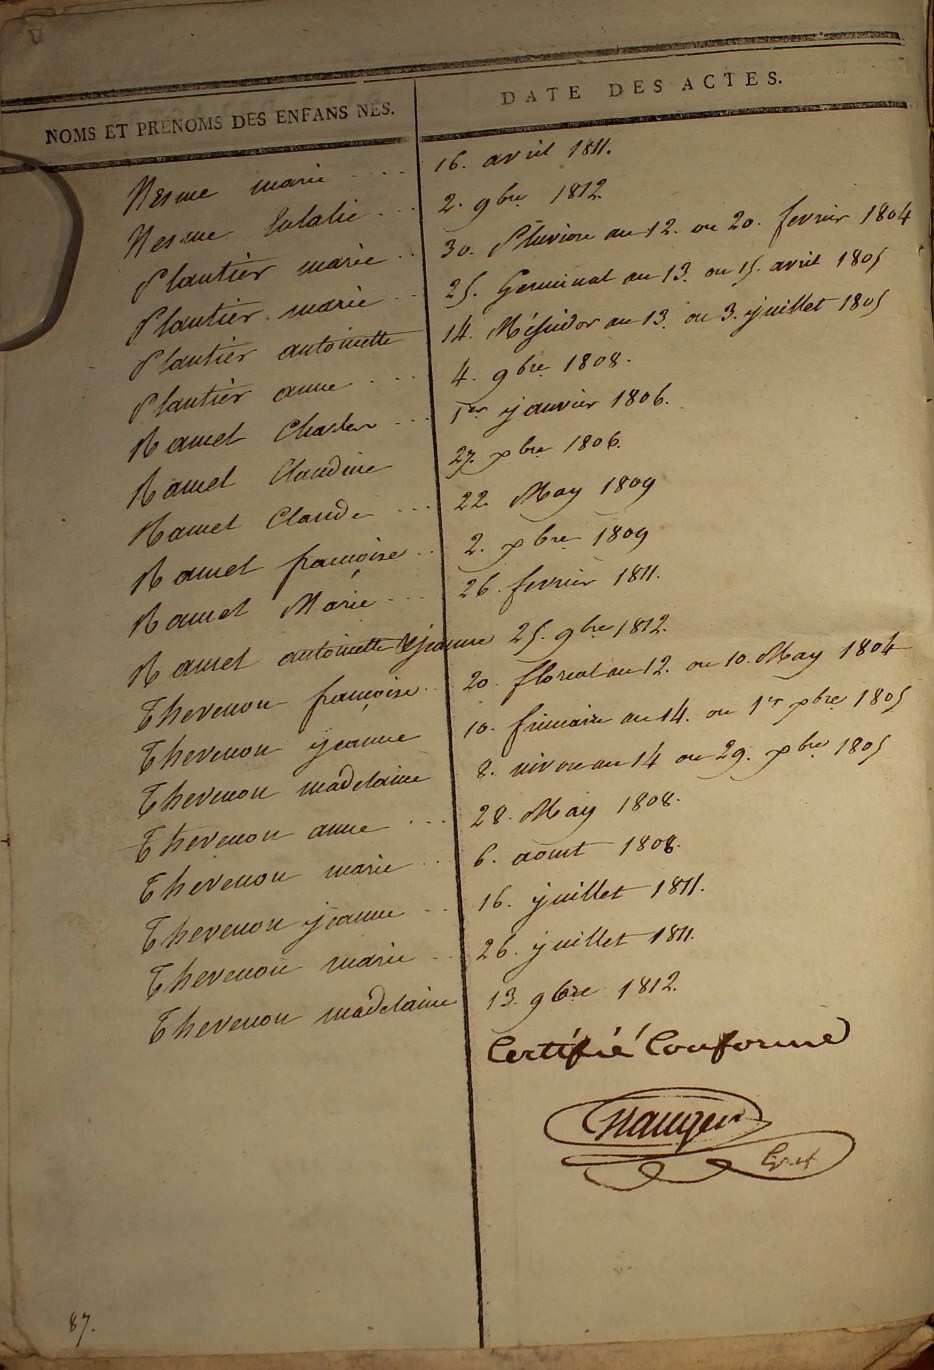 NOMS ET PRÉNOMS DES ENFANS NÉS. DATE DES ACTES.
Nesme marie .... 16. avril 1811.
Nesme Eulalie ... 2. 9bre 1812
Plantier marie .. 30. Pluviose an 12. ou 20. fevrier 1804
Plantier marie .. 25. Germinal an 13. ou 15. avril 1805
Plantier antoinette 14. Messidor an 13. ou 3. juillet 1805
Plantier anne .... 4. 9bre 1808.
Ramel Charles ... 1er janvier 1806.
Ramel Claudine 27. xbre 1806.
Ramel Claude ... 22. May 1809
Ramel françoise .. 2. xbre 1809
Ramel Marie .... 26. fevrier 1811.
Ramel antoinette & jeanne 25. 9bre 1812.
Thevenon françoise .. 20. floreal an 12. ou 10. May 1804
Thevenon jeanne 10. frimaire an 14. ou 1er xbre 1805
Thevenon madelaine 8. nivose an 14 ou 29. xbre 1805
Thevenon anne ... 28. May 1808.
Thevenon marie .. 6. aout 1808.
Thevenon jeanne .. 16. juillet 1811.
Thevenon marie .. 26. juillet 1811.
Thevenon madelaine 13. 9bre 1812.
Certifié Conforme
87.